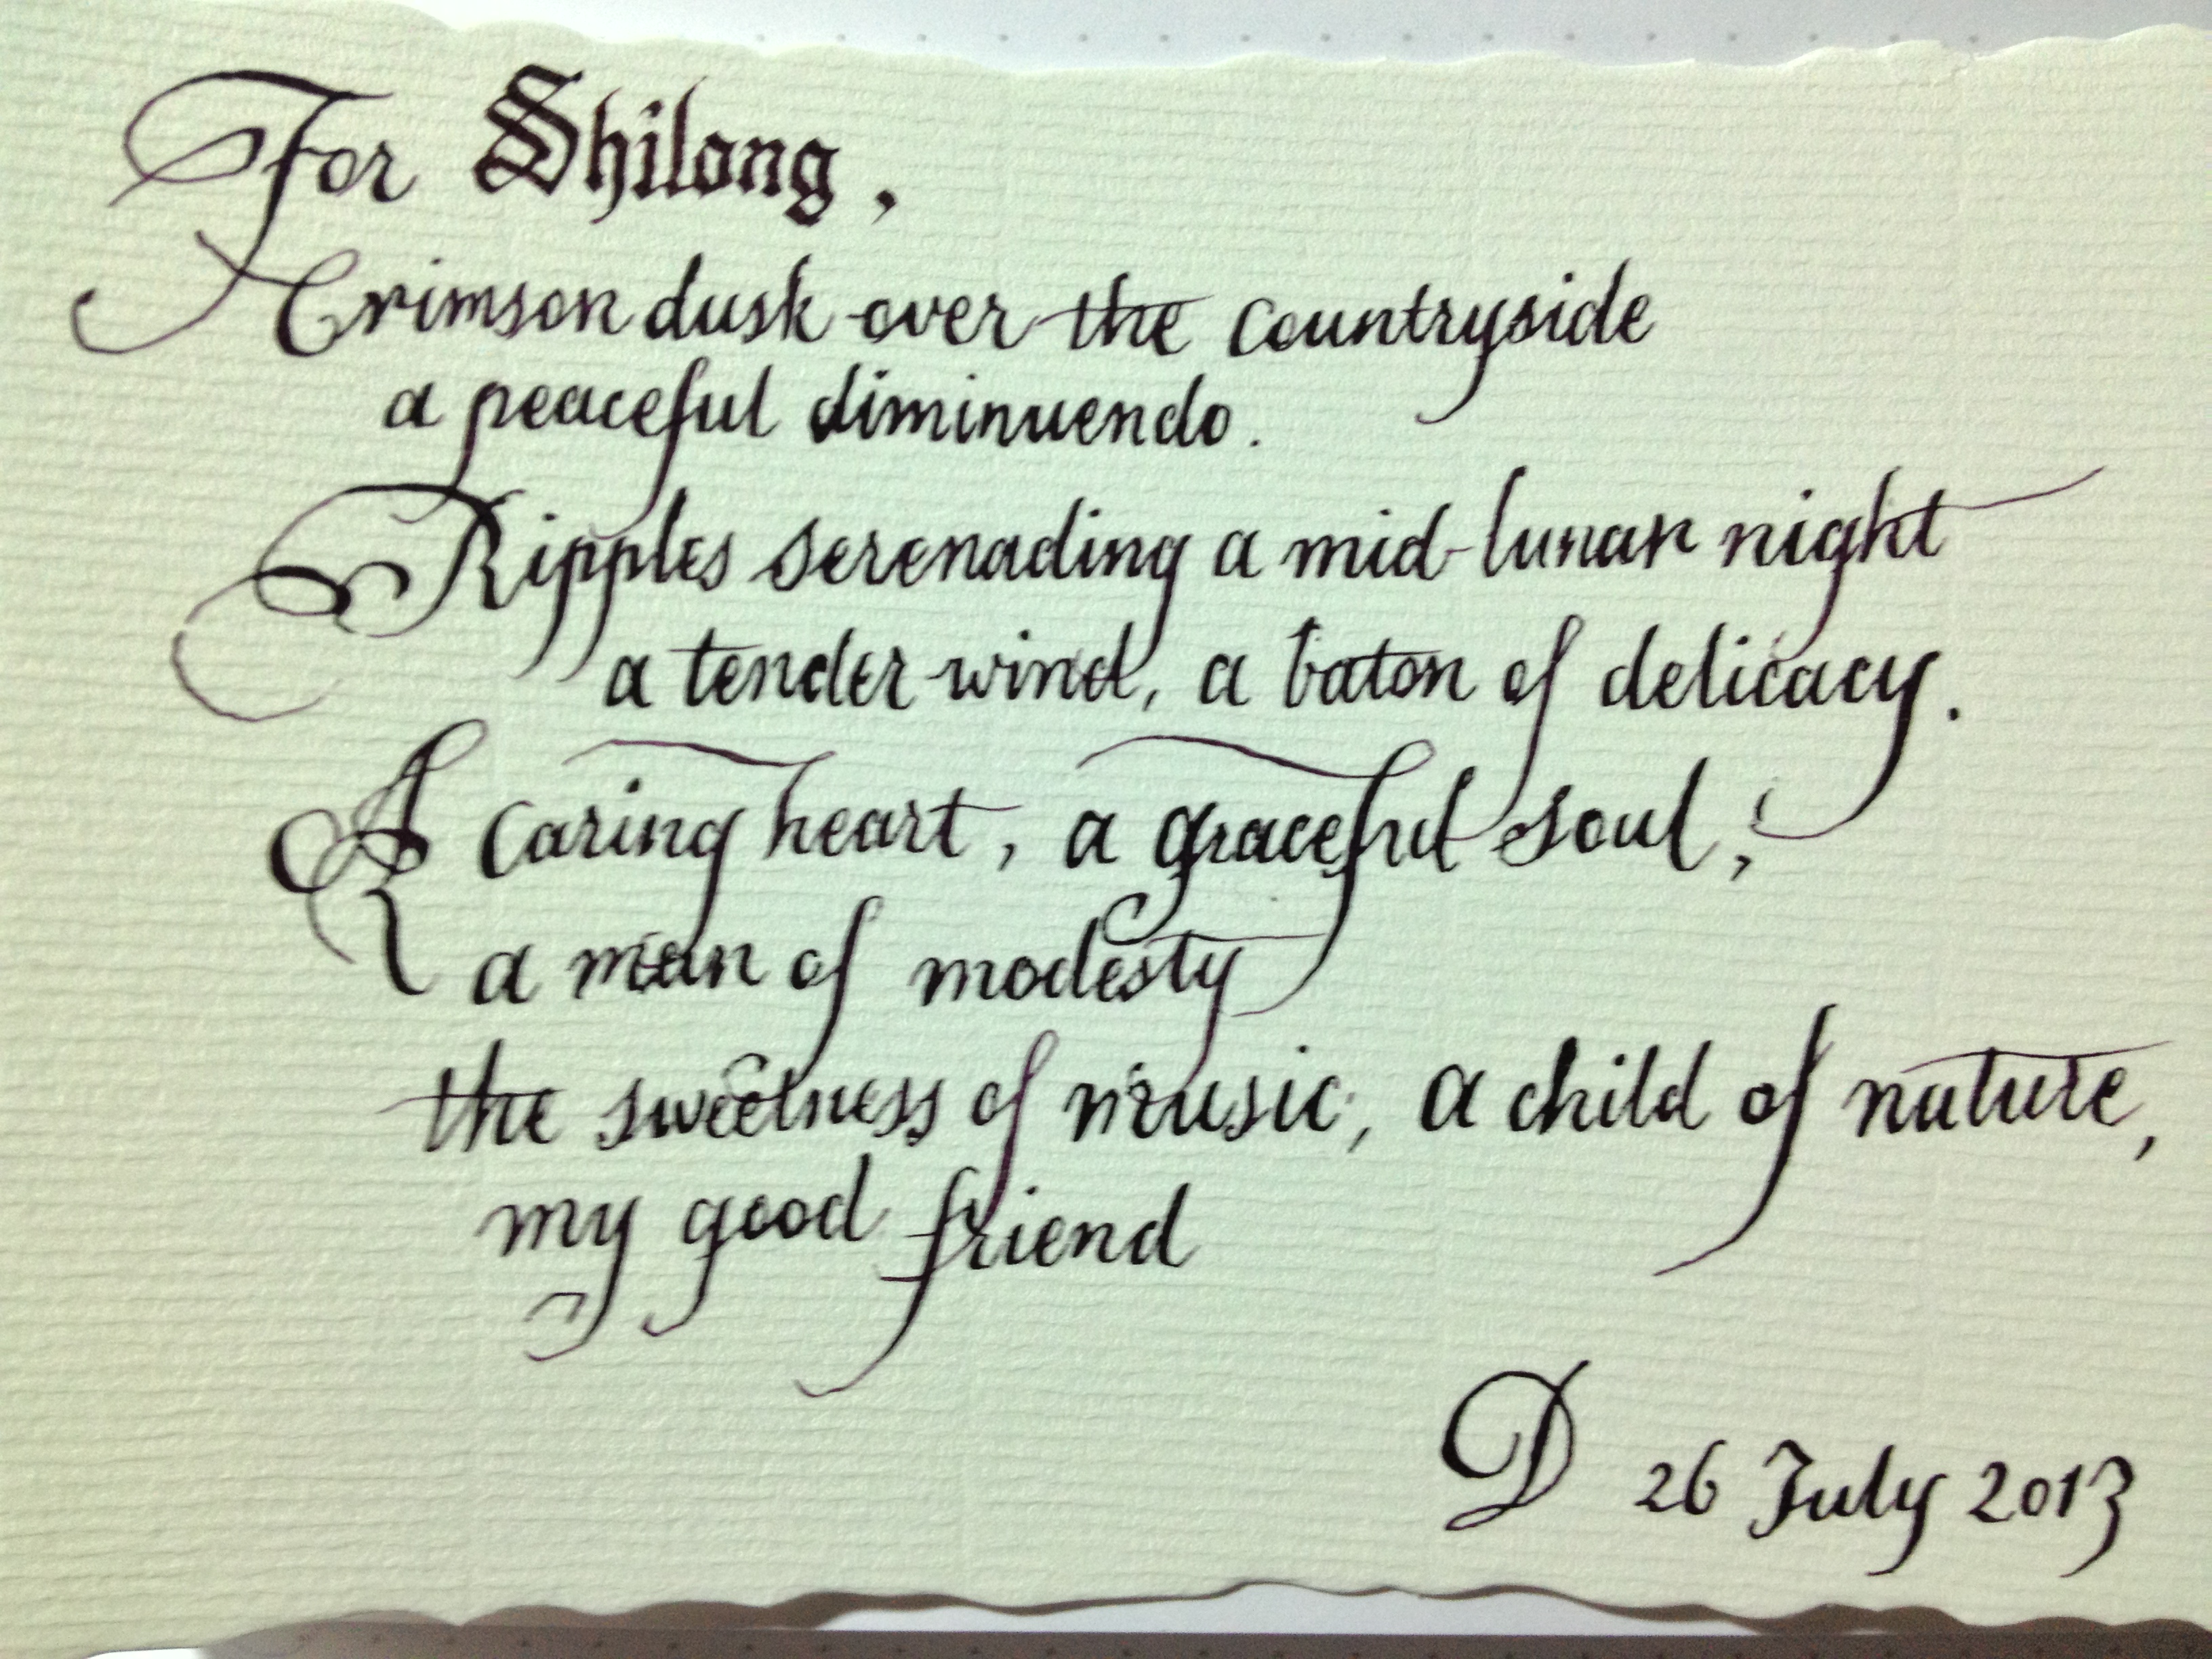 For Shilong,
Crimson dusk over the countryside
a peaceful diminuendo.
Ripples serenading a mid-lunar night
a tender wind, a baton of delicacy.
A caring heart, a graceful soul,
a man of modesty
the sweetness of music, a child of nature,
my good friend
D 26 July 2013